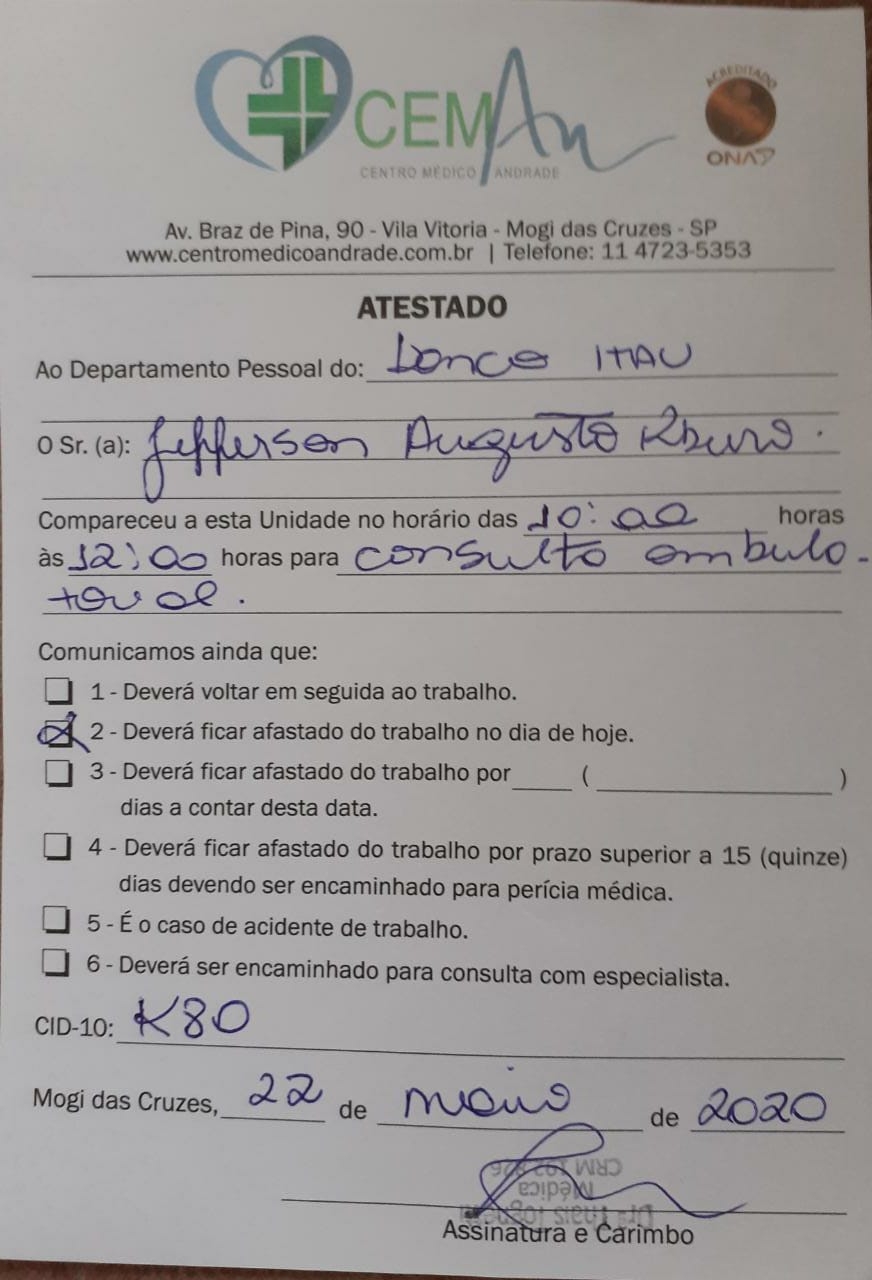 CEMAn
CENTRO MÉDICO ANDRADE
ACREDITADO
ONA
Av. Braz de Pina, 90 - Vila Vitoria - Mogi das Cruzes - SP
www.centromedicoandrade.com.br | Telefone: 11 4723-5353
ATESTADO
Ao Departamento Pessoal do: Banco ITAU
O Sr. (a): Jefferson Augusto
Compareceu a esta Unidade no horário das 10:00 horas
às 12:00 horas para consulta ambula-
torial.
Comunicamos ainda que:
1 - Deverá voltar em seguida ao trabalho.
2 - Deverá ficar afastado do trabalho no dia de hoje.
3 - Deverá ficar afastado do trabalho por ____ ( ____ )
dias a contar desta data.
4 - Deverá ficar afastado do trabalho por prazo superior a 15 (quinze)
dias devendo ser encaminhado para perícia médica.
5 - É o caso de acidente de trabalho.
6 - Deverá ser encaminhado para consulta com especialista.
CID-10: K80
Mogi das Cruzes, 22 de maio de 2020
CRM
Médica
Drª Thais
Assinatura e Carimbo